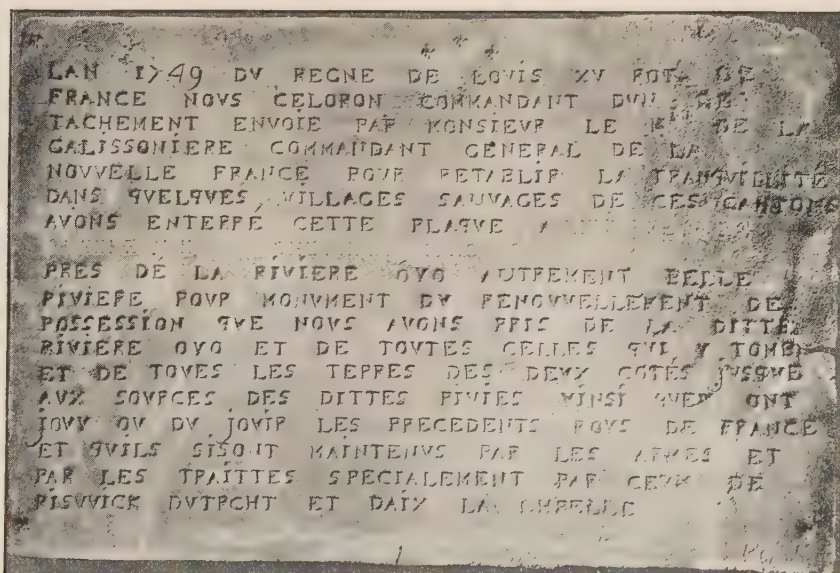 LAN 1749 DV REGNE DE LOVIS XV ROY DE
FRANCE NOVS CELORON COMMANDANT DVN DE
TACHEMENT ENVOIE PAR MONSIEVR LE M DE LA
GALISSONIERE COMMANDANT GENERAL DE LA
NOVVELLE FRANCE POVR RETABLIR LA TRANQVILLITE
DANS QVELQVES VILLAGES SAUVAGES DE CES CANTONS
AVONS ENTERRE CETTE PLAQVE A
PRES DE LA RIVIERE OYO AUTREMENT BELLE
RIVIERE POVR MONVMENT DV RENOVVELLEMENT DE
POSSESSION QVE NOVS AVONS PRIS DE LA DITTE
RIVIERE OYO ET DE TOVTES CELLES QVI Y TOMBE
ET DE TOVES LES TERRES DES DEVX COTES JVSQVE
AVX SOVRCES DES DITTES RIVIES VINSI QVEN ONT
JOVY OV DV JOVIR LES PRECEDENTS ROYS DE FRANCE
ET QVILS SISONT MAINTENVS PAR LES ARMES ET
PAR LES TRAITTES SPECIALEMENT PAR CEVX DE
RISVVICK DVTRCHT ET DAIX LA CHPELLE